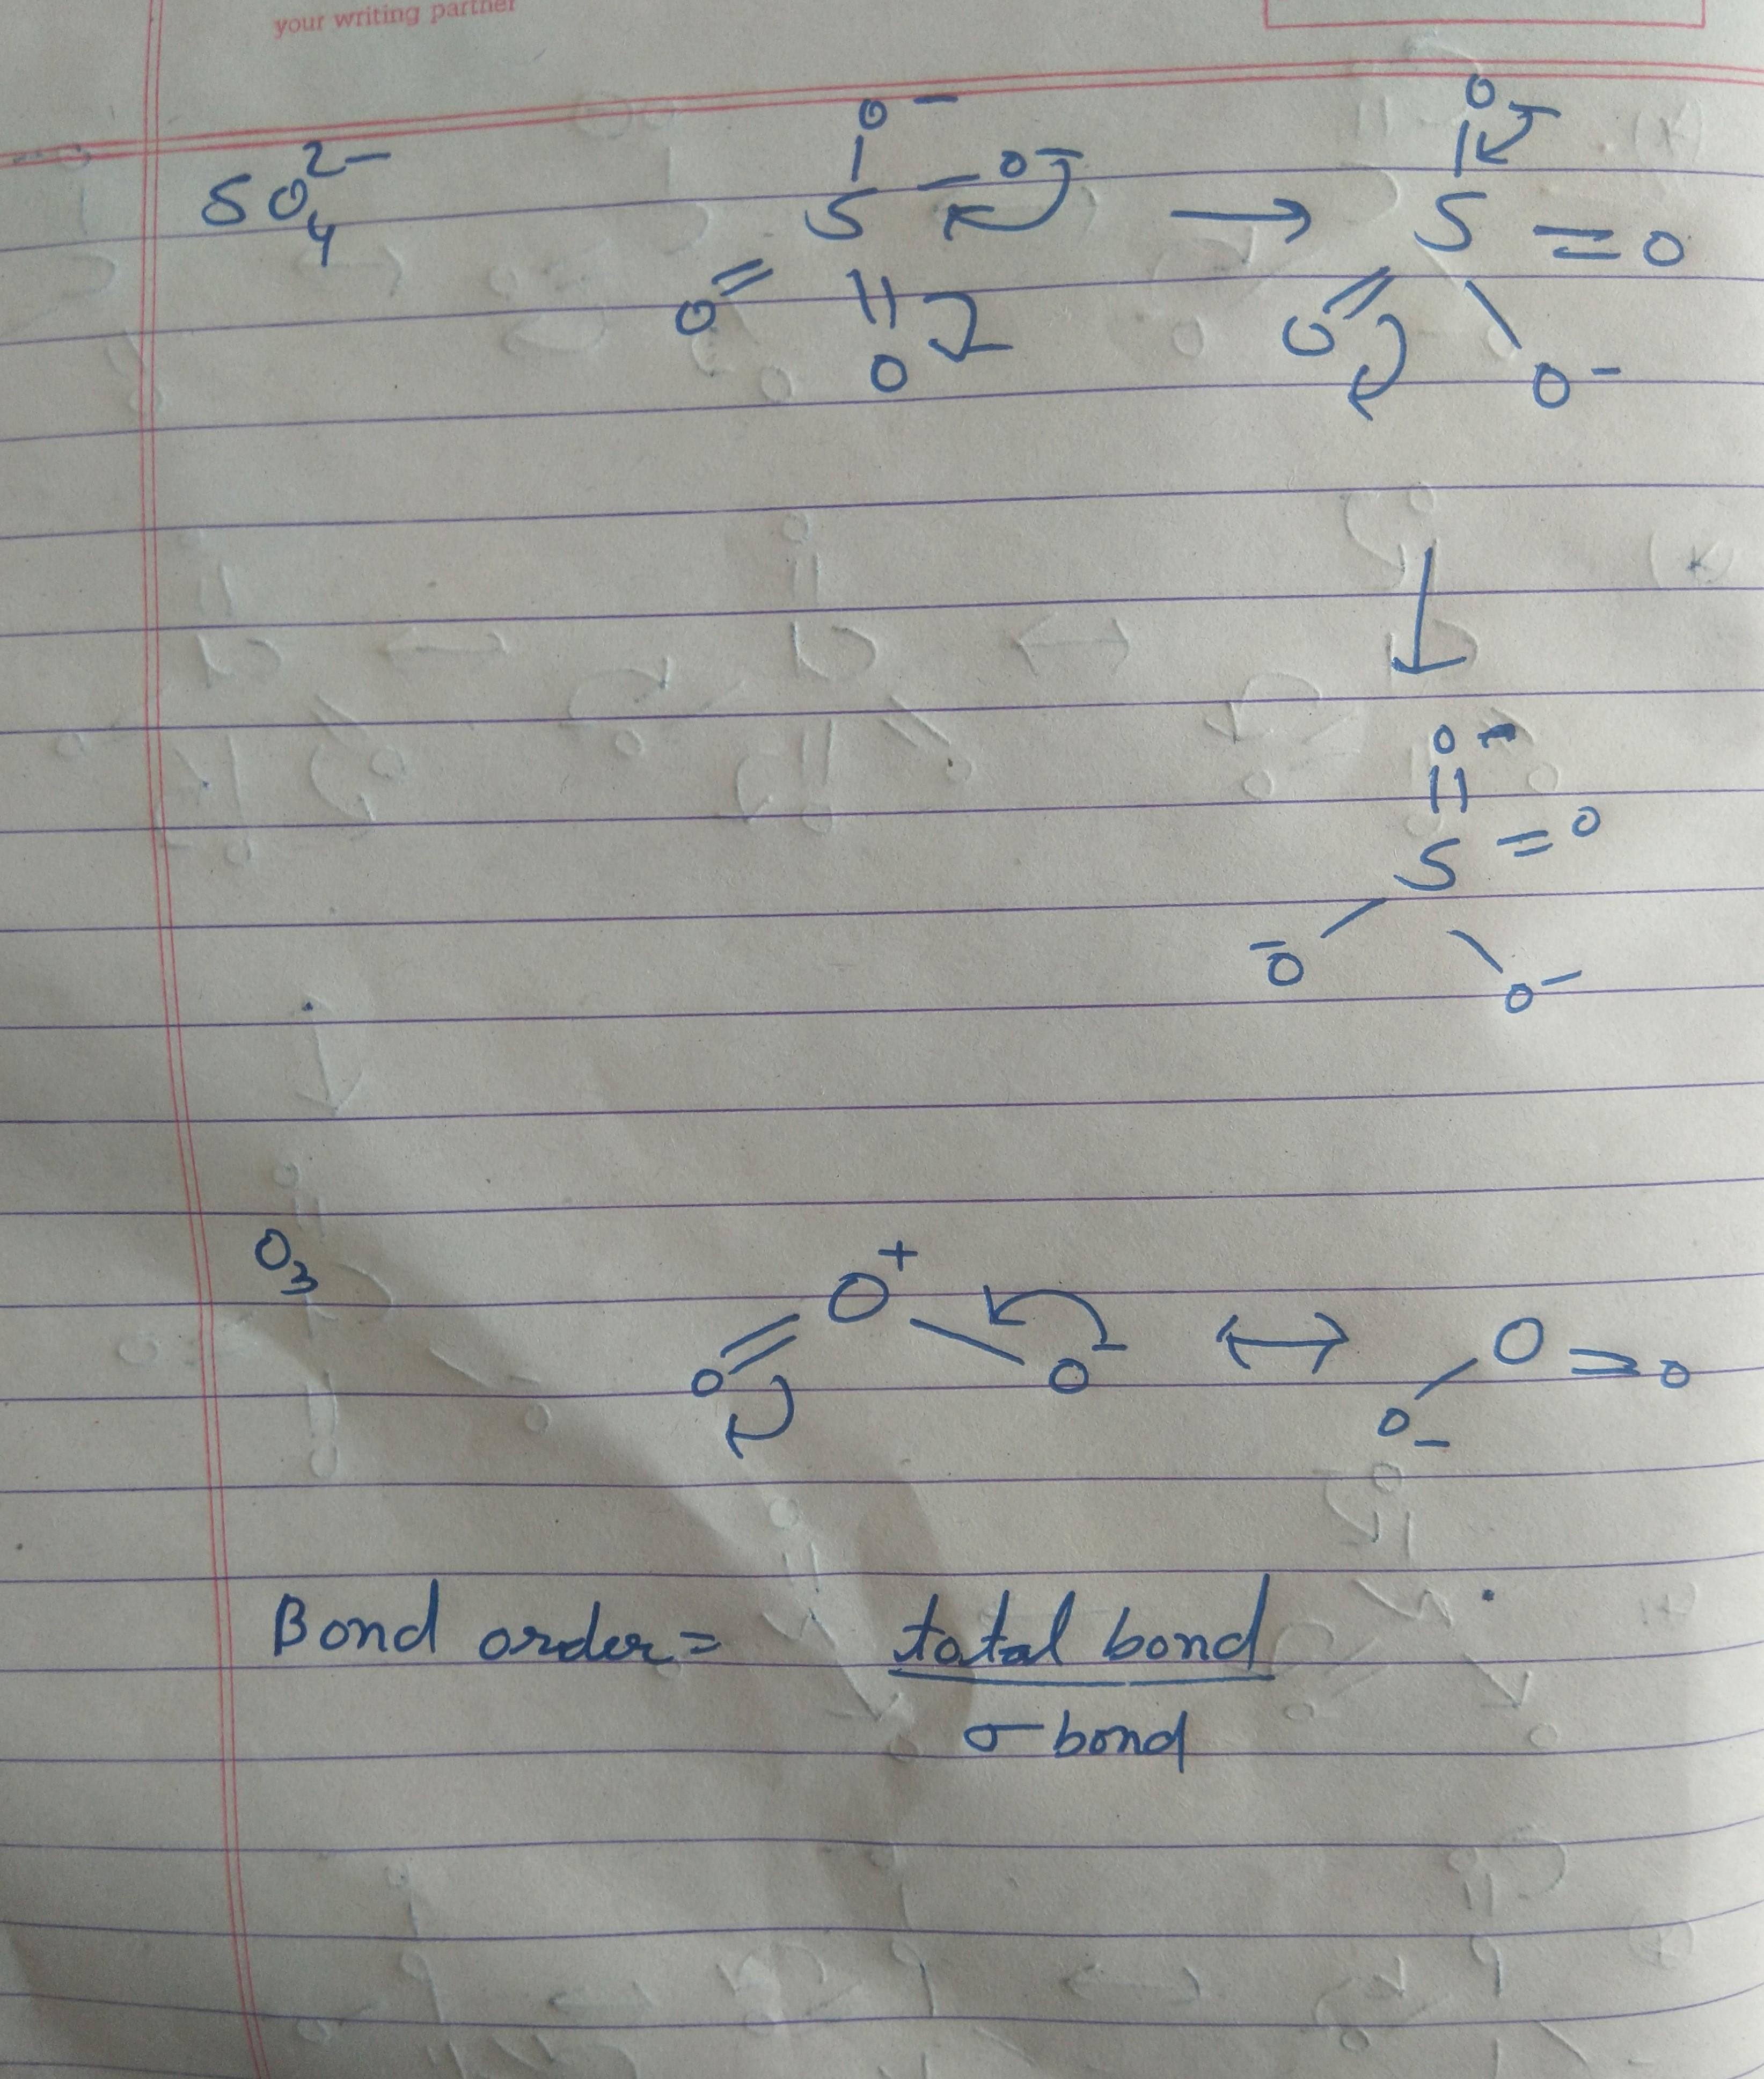 your writing partner
SO₄²⁻
O⁻
S – O⁻
O =
||
O
→
O⁻
|
S = O
O
O⁻
↓
O
||
S = O
⁻O
O⁻
O₃
O⁺
O = – O⁻ ↔ O = O
O⁻
Bond order = total bond
σ bond